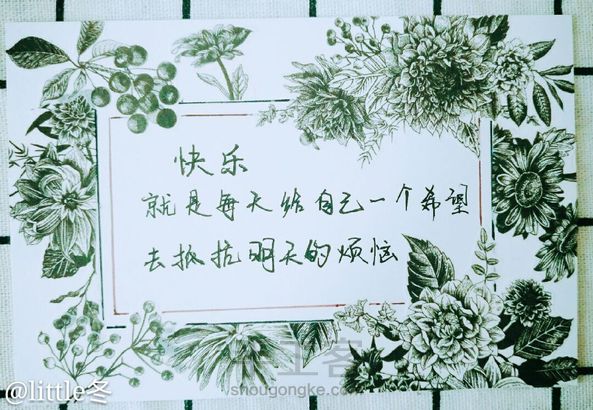 快乐
就是每天给自己一个希望
去抵抗明天的烦恼
手工客
shougongke.com
@little冬